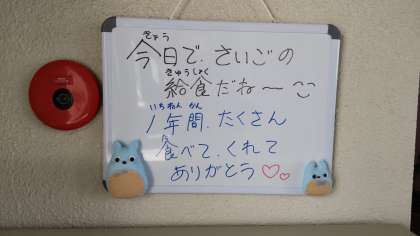 きょう
今日で、さいごの
きゅうしょく
給食だね〜
いちねん かん
1年間、たくさん
た
食べて、くれて
ありがとう♡♡